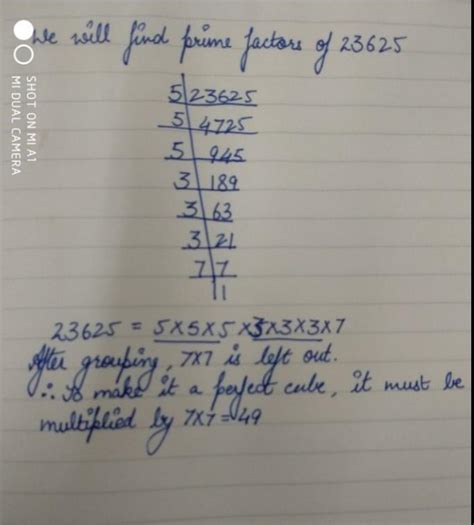 We will find prime factors of 23625
SHOT ON MI A1
MI DUAL CAMERA
5 23625
5 4725
5 945
3 189
3 63
3 21
7 7
1
23625 = 5×5×5×3×3×3×7
After grouping, 7×7 is left out.
∴ To make it a perfect cube, it must be
multiplied by 7×7=49